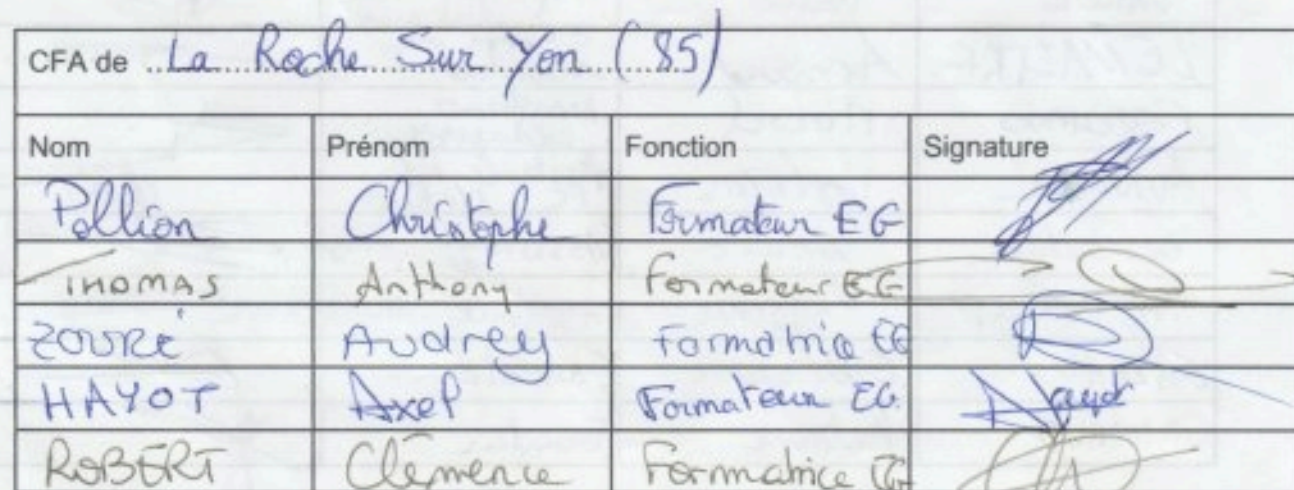 CFA de La Roche Sur Yon (85)
Nom Prénom Fonction Signature
Pollion Christophe Formateur EG
THOMAS Anthony Formateur EG
ZOURÉ Audrey Formatrice EG
HAYOT Axel Formateur EG. Hayot
ROBERT Clémence Formatrice EG